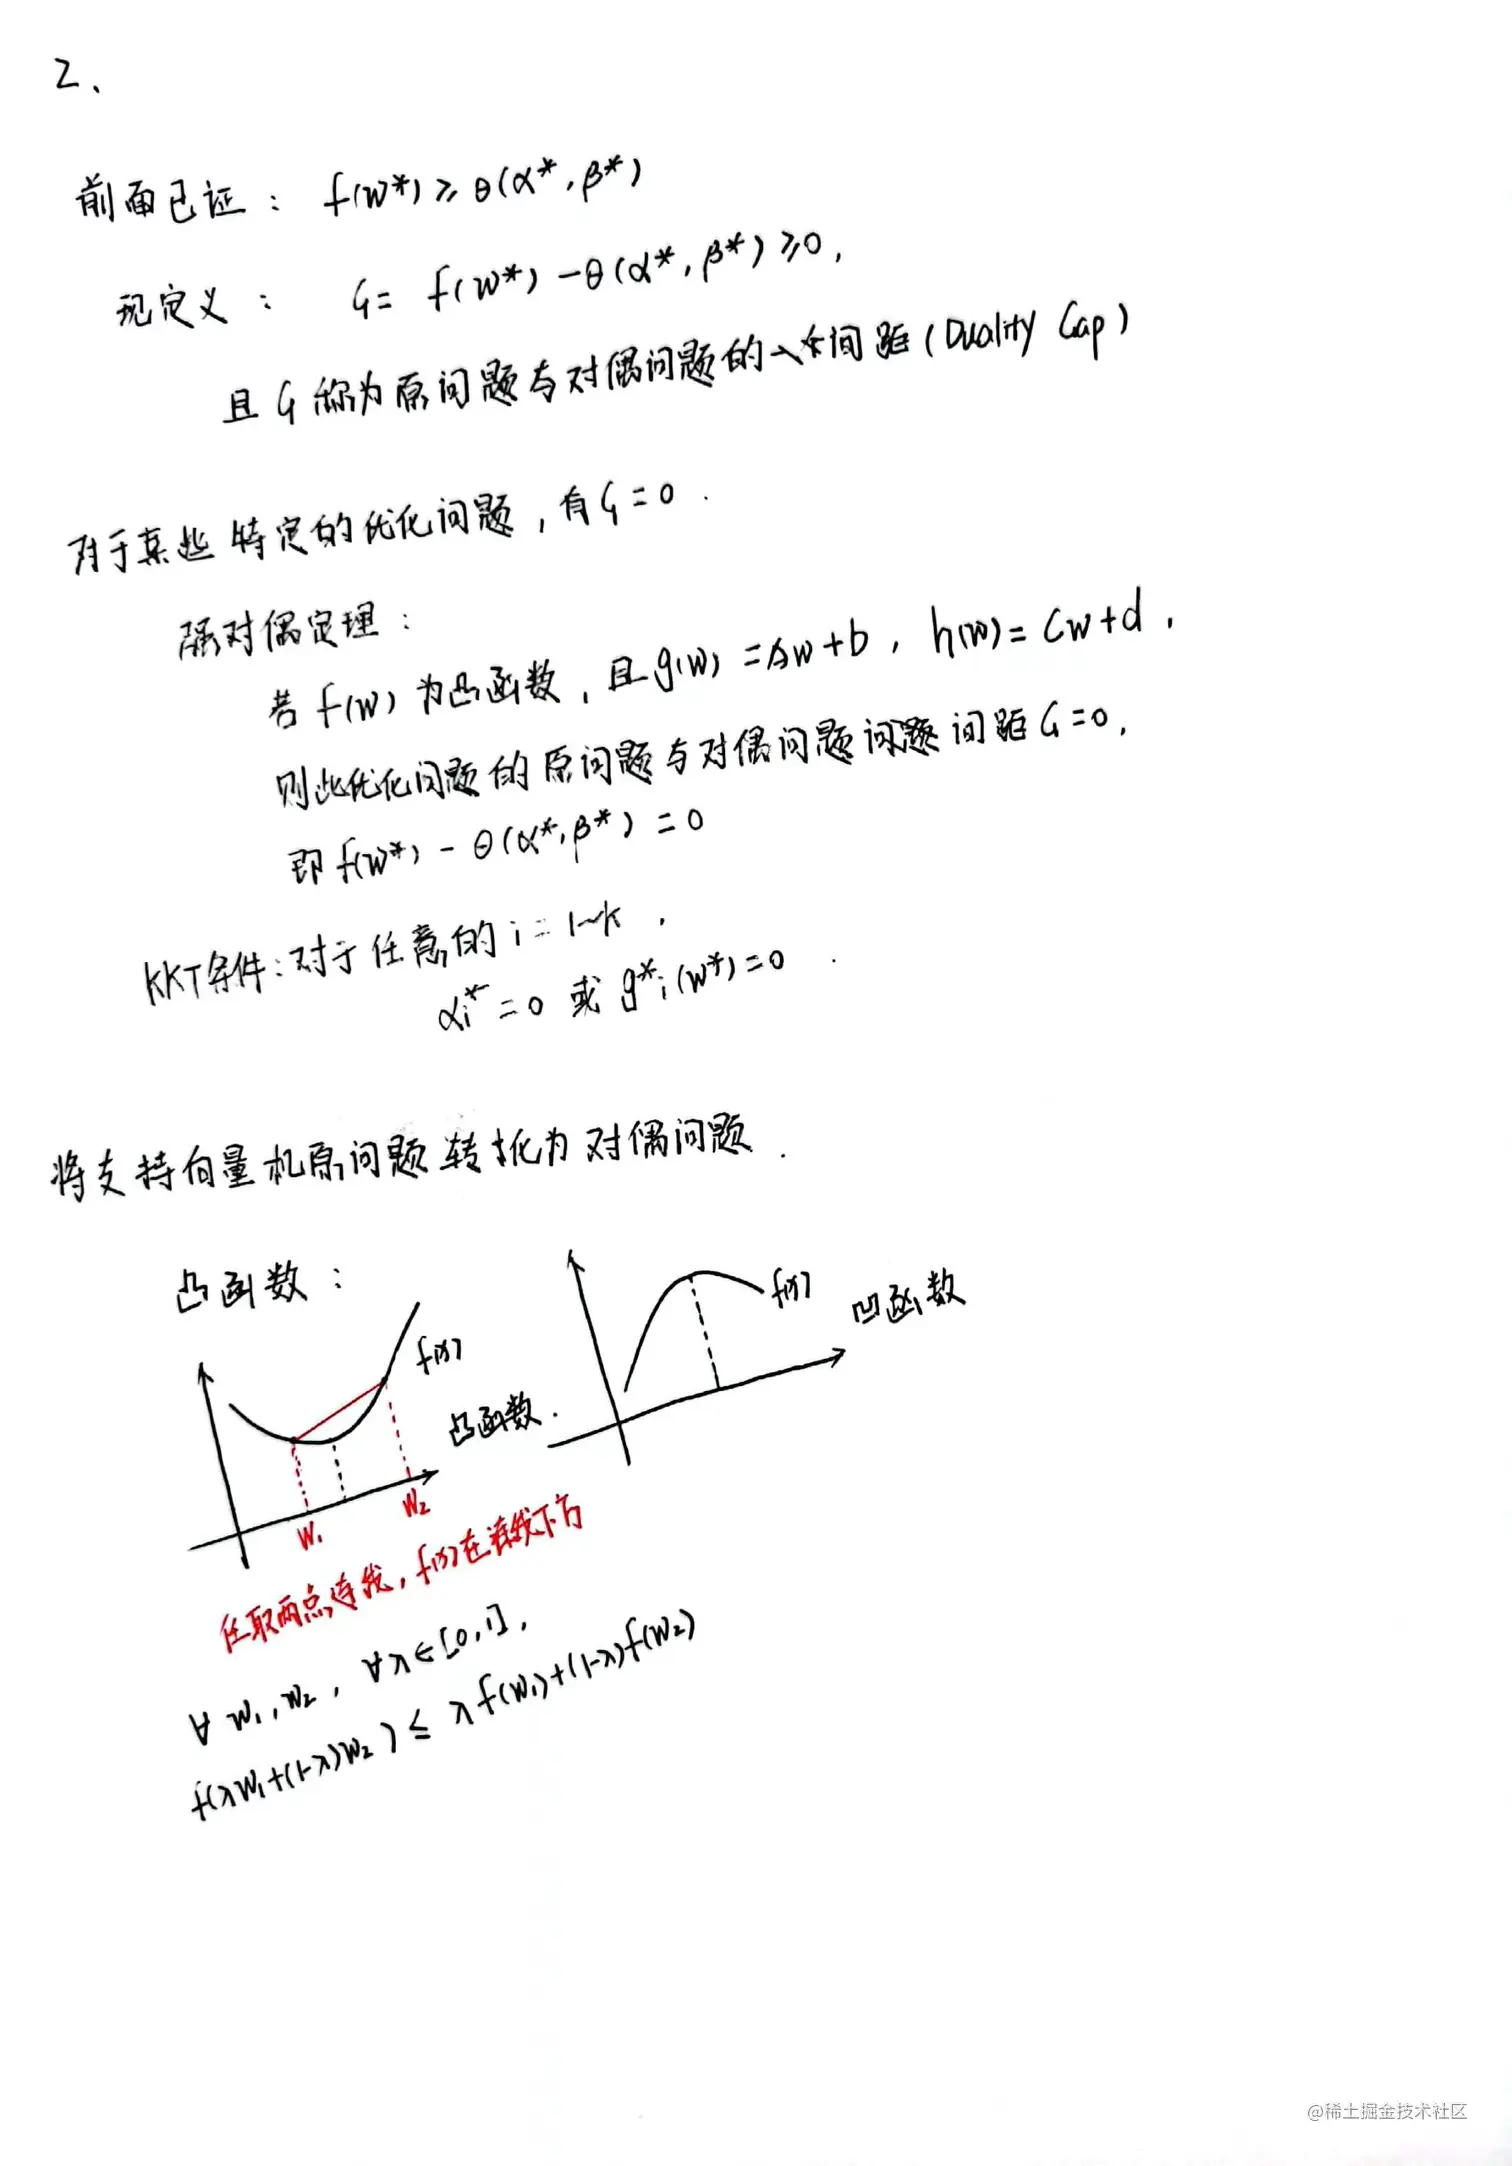 2、
前面已证： f(w*) ≥ θ(α*, β*)
现定义： G = f(w*) - θ(α*, β*) ≥ 0,
且 G 称为原问题与对偶问题的间距 (Duality Gap)
对于某些特定的优化问题, 有 G = 0 .
强对偶定理：
若 f(w) 为凸函数, 且 g(w) = Aw+b, h(w) = Cw+d,
则此优化问题的原问题与对偶问题问题间距 G = 0,
即 f(w*) - θ(α*, β*) = 0
KKT条件: 对于任意的 i = 1~k ,
αi* = 0 或 g*i(w*) = 0 .
将支持向量机原问题转化为对偶问题 .
凸函数：
f(x)
凸函数.
w₁
w₂
f(x)
凹函数
任取两点连线, f(x)在连线下方
∀ w₁, w₂, ∀λ∈[0,1],
f(λw₁+(1-λ)w₂) ≤ λf(w₁)+(1-λ)f(w₂)
@稀土掘金技术社区